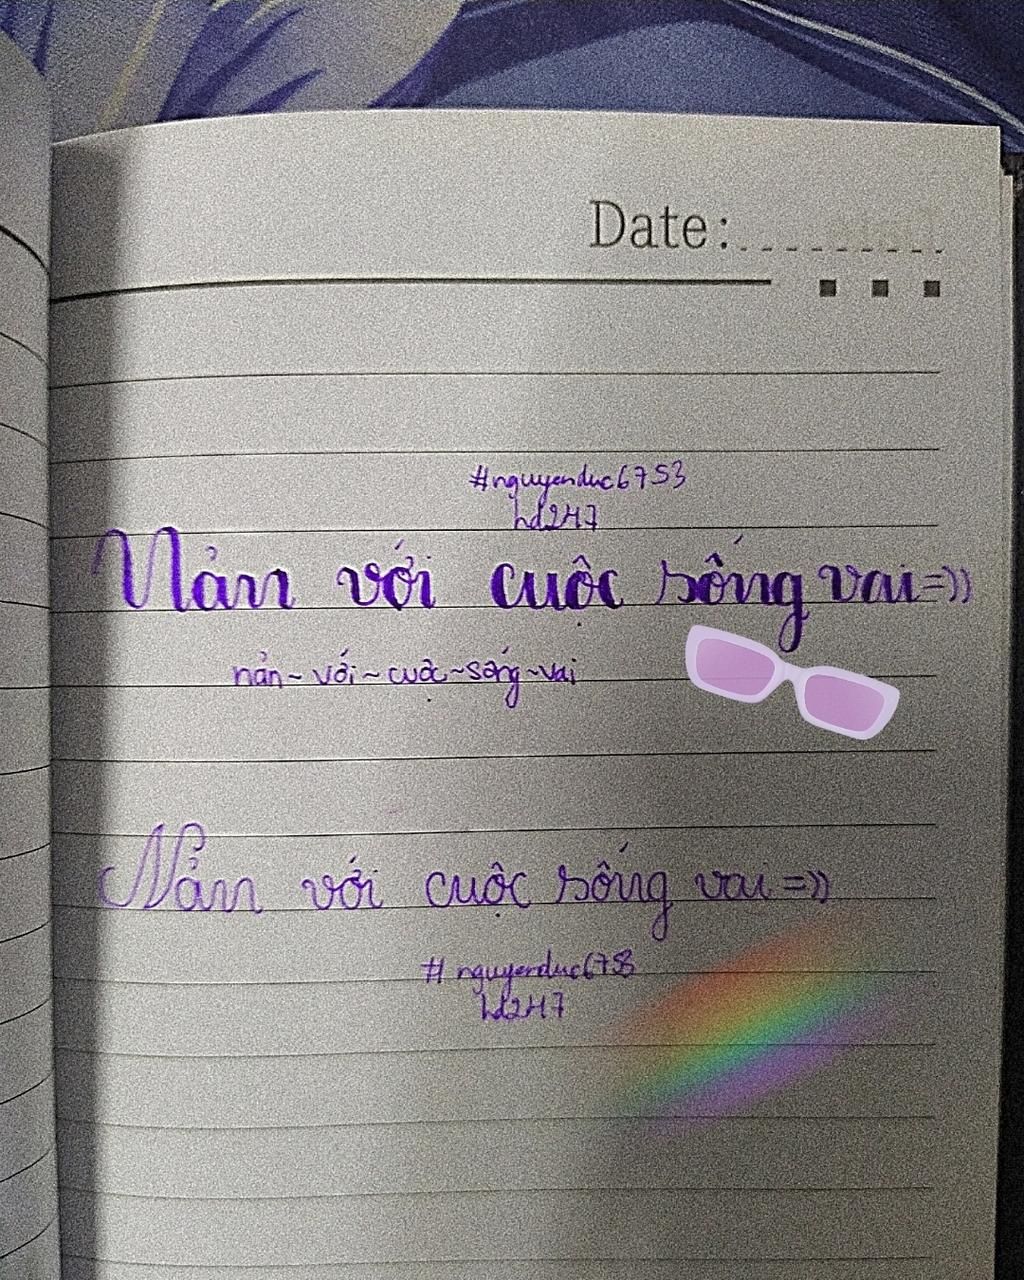 Date:
#nguyenduc6753
hd247
Nản với cuộc sống vai=))
nản~với~cuộc~sống~vai
Nản với cuộc sống vai=))
#nguyenduc6753
hd247